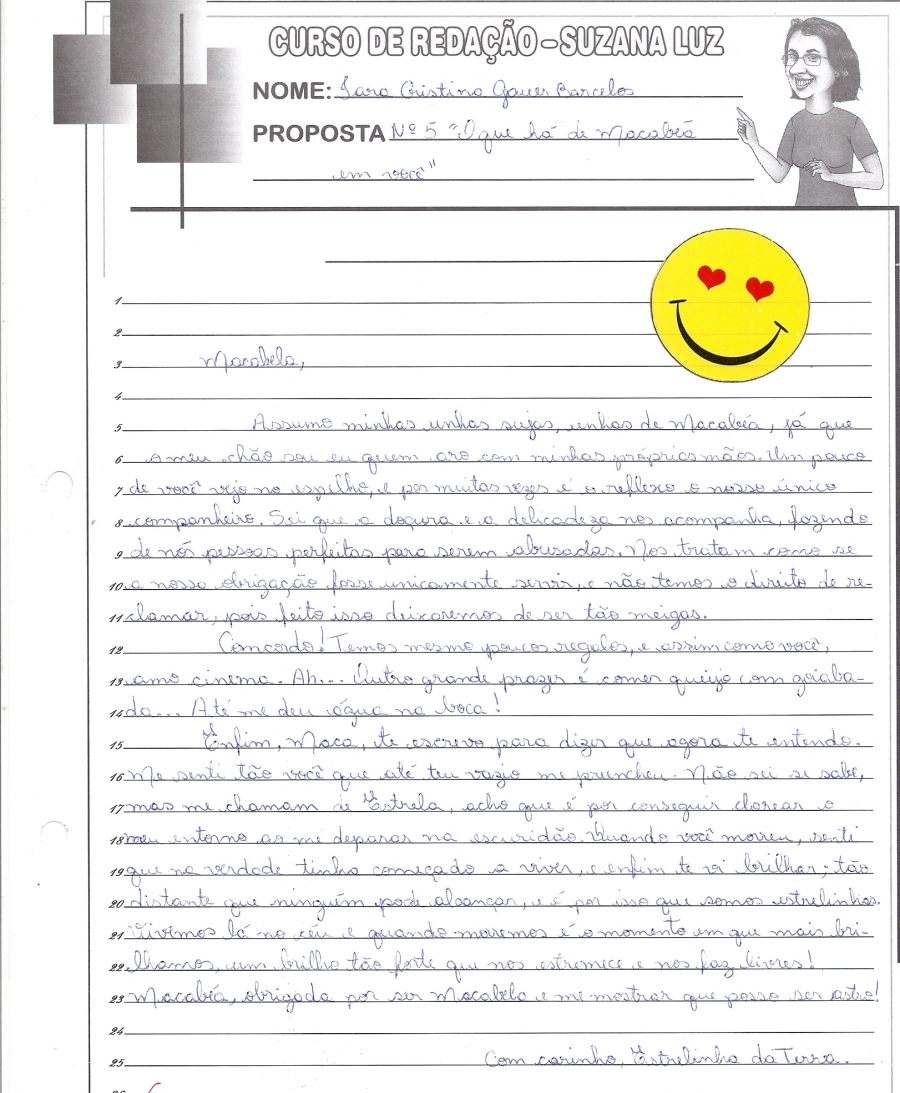 CURSO DE REDAÇÃO - SUZANA LUZ
NOME: Iara Cristina Gauer Barcelos
PROPOSTA Nº 5 "O que há de Macabéa
em você"
1
2
3 Macabela,
4
5 Assumo minhas unhas sujas, unhas de Macabéa, já que
6 o meu chão sou eu quem aro com minhas próprias mãos. Um pouco
7 de você vejo no espelho, e por muitas vezes é o reflexo o nosso único
8 companheiro. Sei que a doçura e a delicadeza nos acompanha, fazendo
9 de nós pessoas perfeitas para serem abusadas. Nos tratam como se
10 a nossa obrigação fosse unicamente servir, e não temos o direito de re-
11 clamar, pois feito isso deixaremos de ser tão meigas.
12 Concordo! Temos mesmo poucos regalos, e assim como você,
13 amo cinema. Ah... Outro grande prazer é comer queijo com goiaba-
14 da... Até me deu água na boca!
15 Enfim, Maca, te escrevo para dizer que agora te entendo.
16 Me senti tão você que até teu vazio me preencheu. Não sei se sabe,
17 mas me chamam de Estrela, acho que é por conseguir clarear o
18 meu entorno ao me deparar na escuridão. Quando você morreu, senti
19 que na verdade tinha começado a viver, e enfim te vi brilhar; tão
20 distante que ninguém pode alcançar, e é por isso que somos estrelinhas.
21 Vivemos lá no céu e quando morremos é o momento em que mais bri-
22 lhamos, um brilho tão forte que nos estremece e nos faz livres!
23 Macabéa, obrigada por ser Macabela e me mostrar que posso ser astro!
24
25 Com carinho, Estrelinha da Terra.